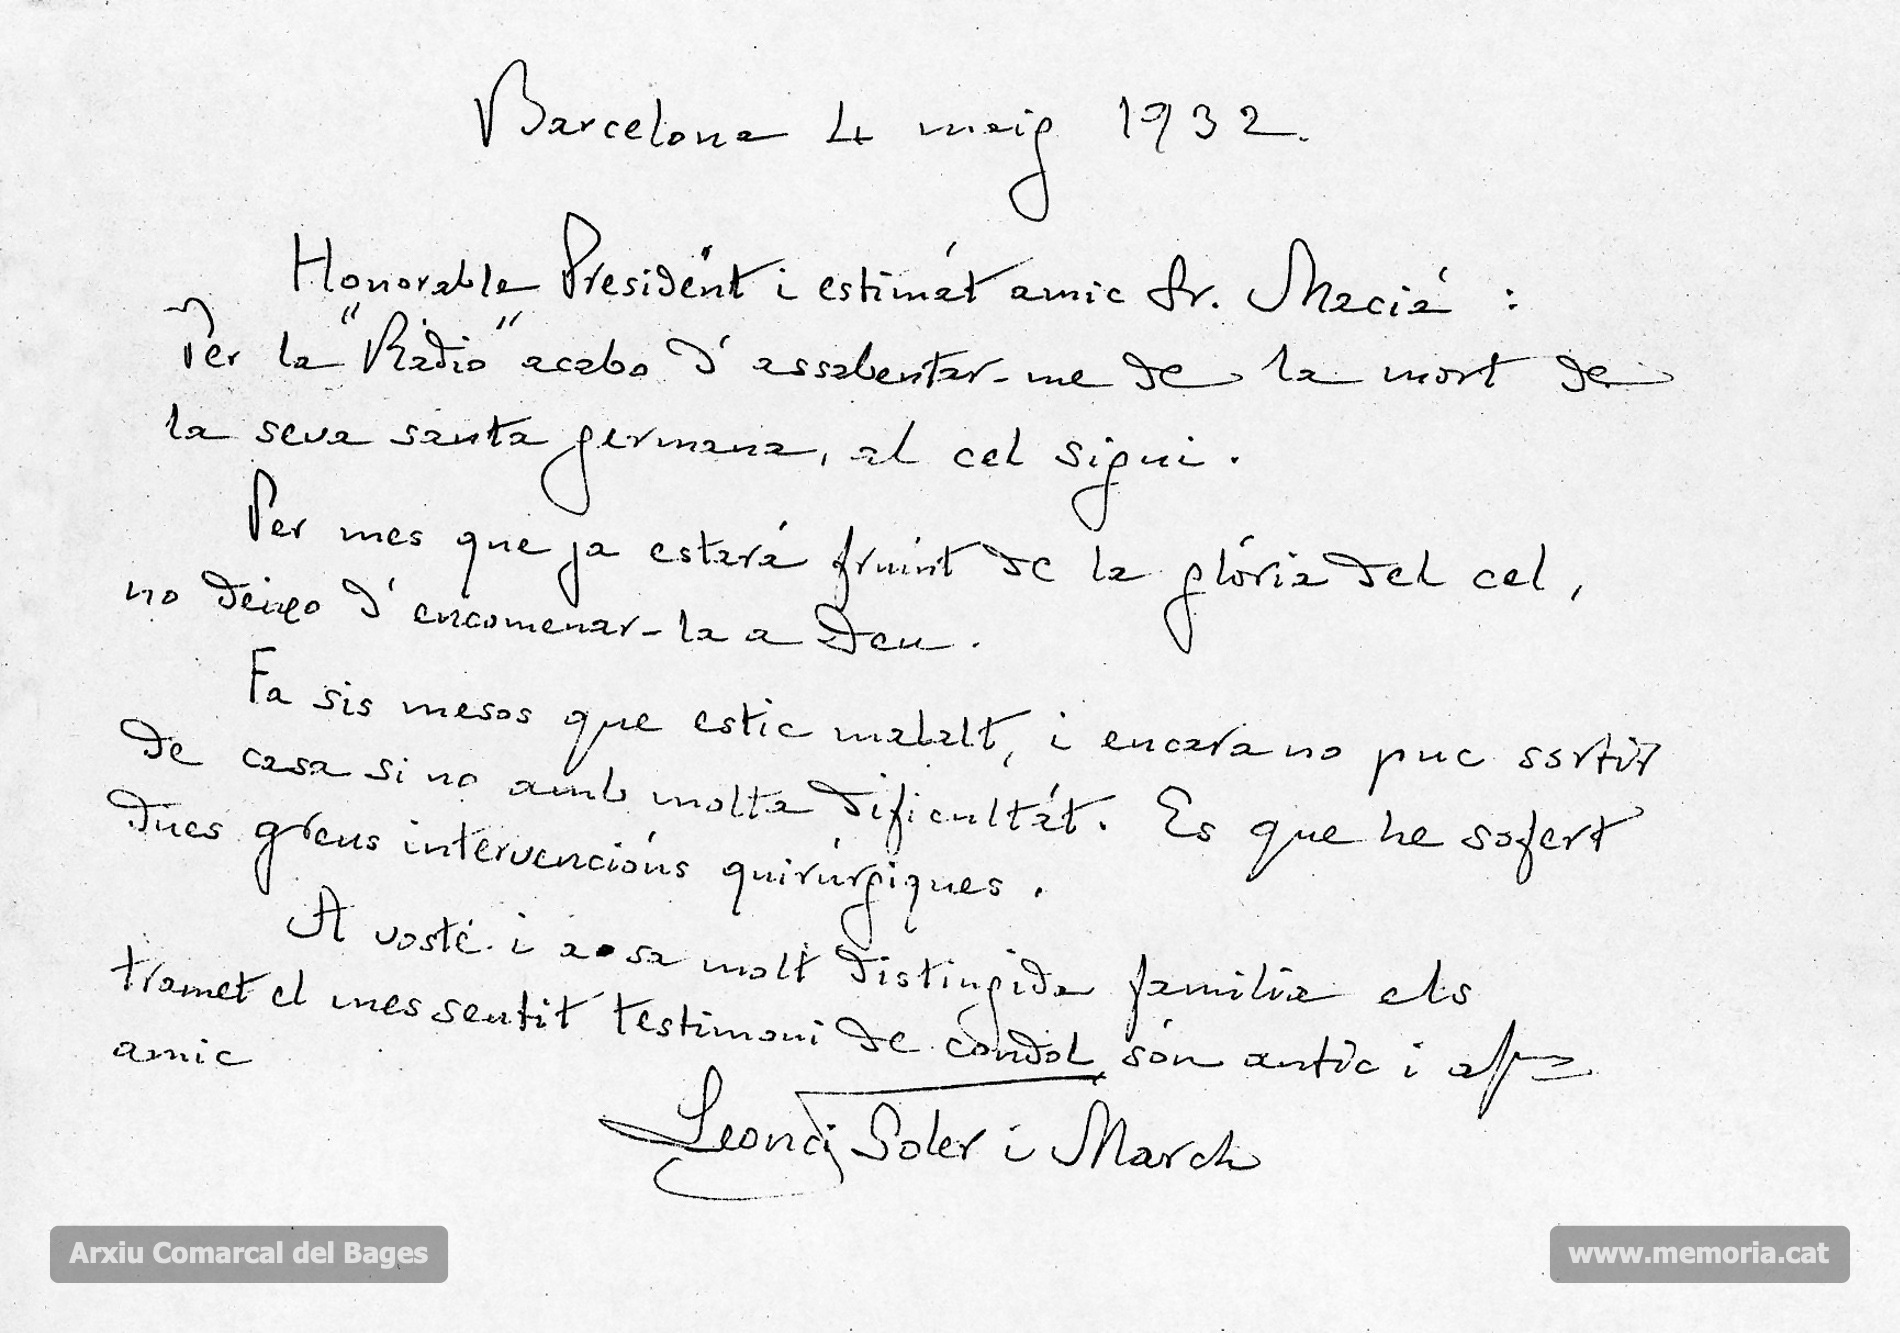 Barcelona 4 maig 1932.
Honorable Presidént i estimát amic Sr. Maciá :
Per la "Ràdio" acabo d'assabentar-me de la mort de
la seva santa germana, al cel sigui.
Per mes que ja estará fruint de la glória del cel,
no deixo d'encomenar-la a Deu.
Fa sis mesos que estic malalt, i encara no puc sortir
de casa si no amb molta dificultát. Es que he sofert
dues greus intervencións quirúrgiques.
A vosté i a sa molt distingida familia els
tramet el mes sentit testimoni de cóndol són antic i
amic
Leonci Soler i March
Arxiu Comarcal del Bages
www.memoria.cat